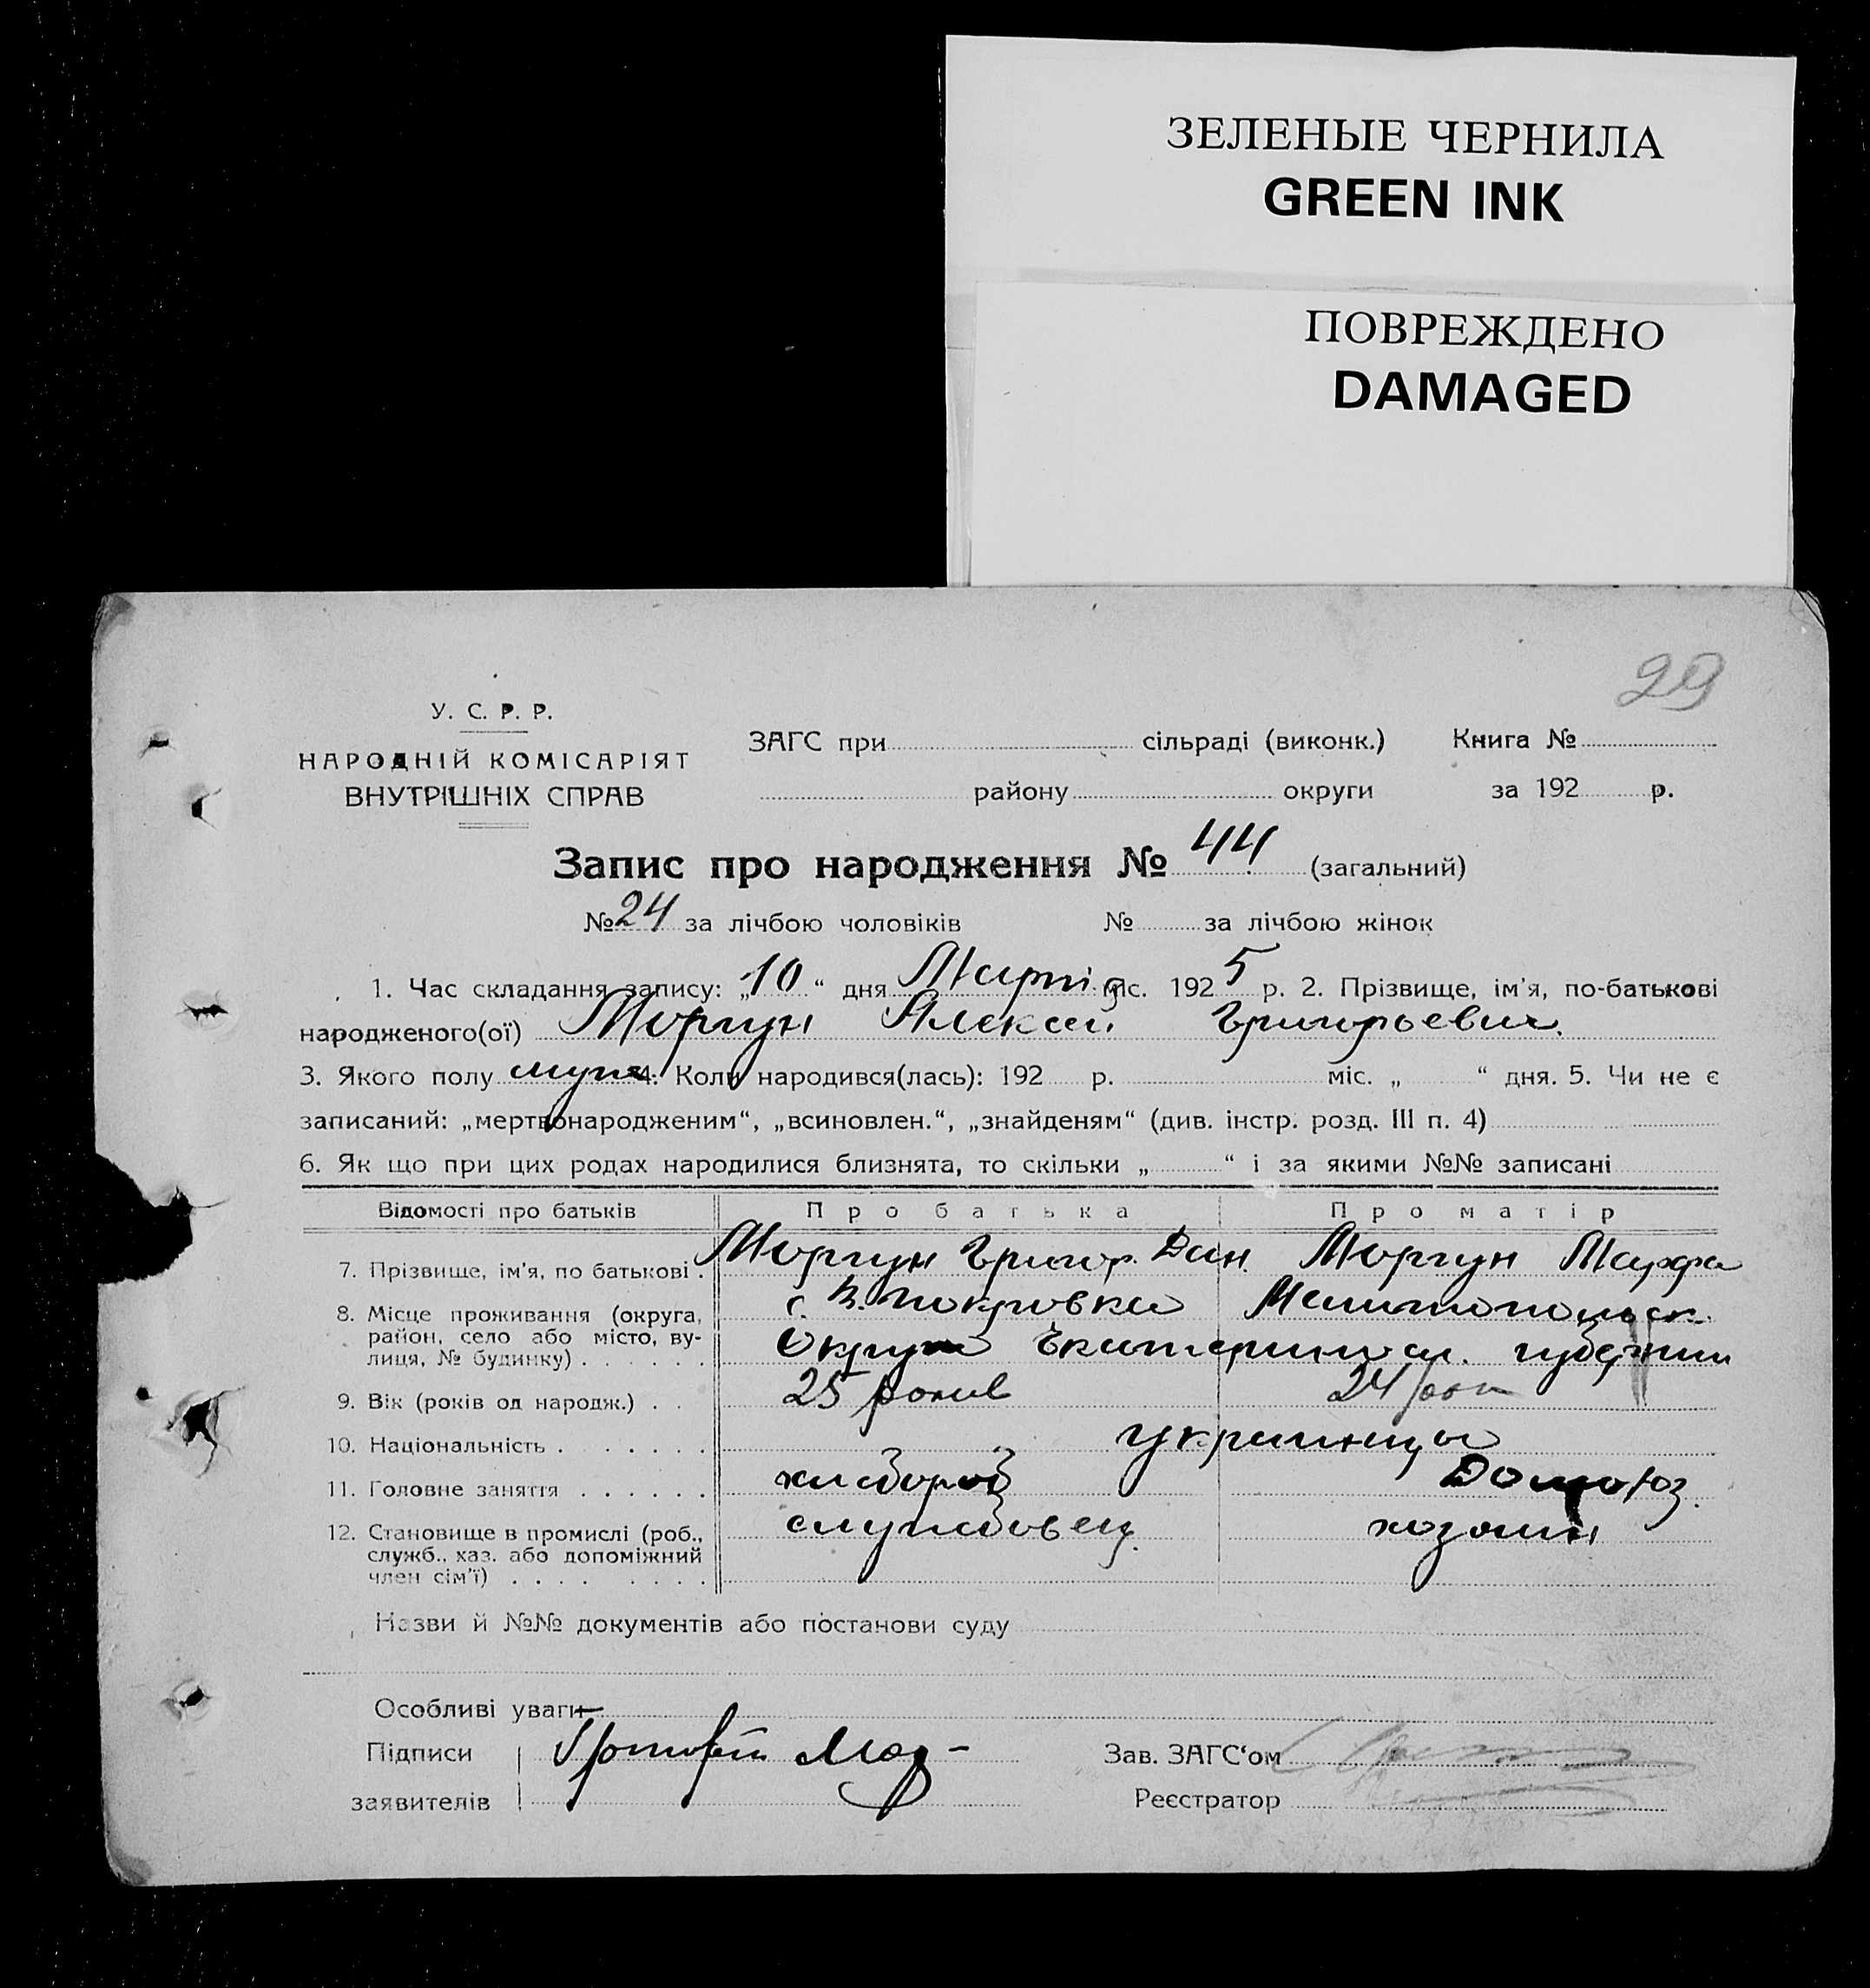 ЗЕЛЕНЫЕ ЧЕРНИЛА
GREEN INK
ПОВРЕЖДЕНО
DAMAGED
29
У. С. Р. Р.
НАРОДНІЙ КОМІСАРІЯТ
ВНУТРІШНІХ СПРАВ
ЗАГС при сільраді (виконк.) Книга №
району округи за 192 р.
Запис про народження № 44 (загальний)
№ 24 за лічбою чоловіків № за лічбою жінок
1. Час складання запису: „10“ дня Марта міс. 1925 р. 2. Прізвище, ім'я, по-батькові
народженого(ої) Моргун Алексей Григорьевич.
3. Якого полу муж 4. Коли народився(лась): 192 р. міс. „ “ дня. 5. Чи не є
записаний: „мертвонародженим“, „всиновлен.“, „знайденям“ (див. інстр. розд. III п. 4)
6. Як що при цих родах народилися близнята, то скільки „ “ і за якими №№ записані
Відомості про батьків Про батька Про матір
7. Прізвище, ім'я, по батькові. Моргун Григор. Дан. Моргун Марфа
8. Місце проживання (округа, район, село або місто, вулиця, № будинку) с. В. Покровка Мелитопольск.
Округа Екатериносл. губернии
9. Вік (років од народж.) 25 років 24 рок
10. Національність украинцы
11. Головне заняття хлибороб Домохоз.
12. Становище в промислі (роб., служб., хаз. або допоміжний член сім'ї) службовец хозяин
Назви й №№ документів або постанови суду
Особливі уваги
Підписи Зав. ЗАГС'ом
заявителів Реєстратор